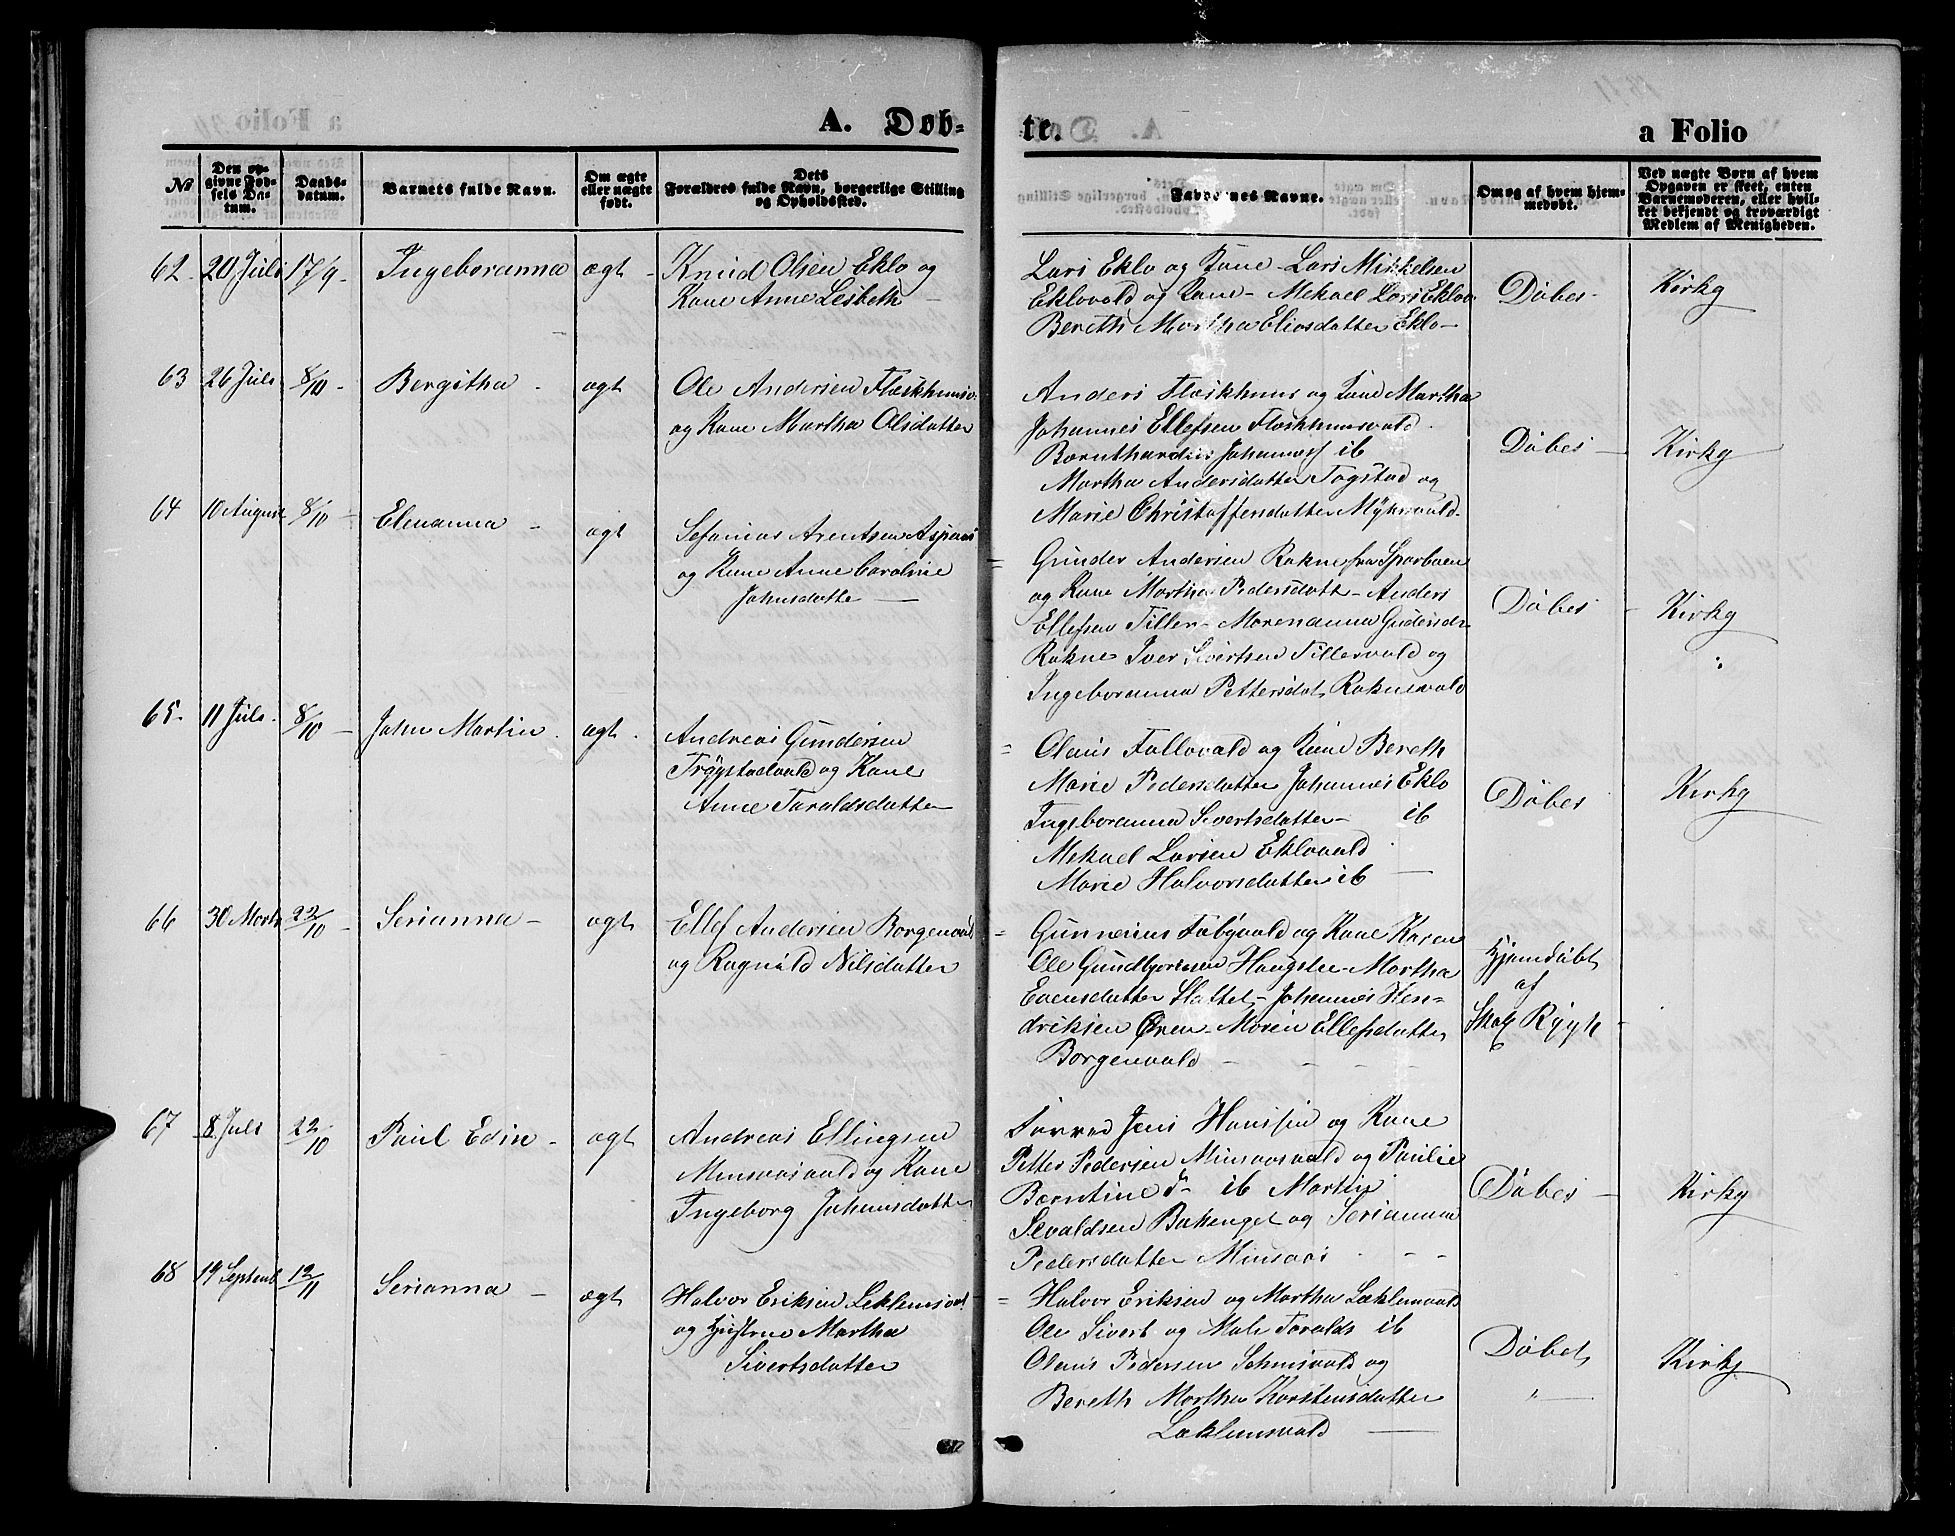 A. Døb-
te.
a Folio
№
Den op-
givne Fød-
sels Da-
tum.
Daabs-
datum.
Barnets fulde Navn.
Om ægte
eller uægte
født.
Dets
Forældres fulde Navn, borgerlige Stilling
og Opholdssted.
Faddernes Navne.
Om og af hvem hjem-
medøbt.
Ved uægte Børn af hvem
Opgaven er skeet, enten
Barnemoderen, eller hvil-
ket bekjendt og troværdigt
Medlem af Menigheden.
62 20 Juli 17/9 Ingeboranna ægt
Knud Olsen Eklo og
Kone Anne Lisbeth
Lars Eklo og Kone - Lars Mikkelsen
Eklovald og Kone - Mekael Lars Eklov
Bereth Martha Eliasdatter Eklo
Døbes
Kirkg
63 26 Juli 8/10 Bergitha ægt
Ole Andersen
og Kone Martha Olsdatter
Anders og Kone Martha
Johannes Ellefsen
ib
Martha Andersdatter og
Marie Christoffersdatter
Døbes
Kirkg
64 10 August 8/10 Elenanna ægt
Sefanias Arentsen Aspaas
og Kone Anne Caroline
Johnsdatte
Gunder Andersen Rokne fra Sparboen
og Kone Martha Pedersdatt - Anders
Ellefsen Tiller - Morenanna
Rokne Iver Sivertsen Tillervald og
Ingeboranna Pettersdat Roknevald
Døbes
Kirkg
65 11 Juli 8/10 John Martin ægt
Andreas Gundersen
og Kone
Anne Taraldsdatter
Olaus og Kone Bereth
Marie Pedersdatter Johannes Eklo
Ingeboranna Sivertsdatter ib
Mekael Larsen Eklovald
Marie Halvorsdatter ib
Døbes
Kirkg
66 30 Marts 22/10 Serianna ægt
Ellef Andersen Borgenvald
og Ragnild Nilsdatter
Gunnerius og Kone Karen
Ole Martha
Evensdatter Johannes Hen-
driksen Øren - Maren Ellefsdatter
Borgenvald
Hjemdøbt
af
67 8 Juli 22/10 Paul Edin ægt
Andreas Ellingsen
Minsaasvald og Kone
Ingeborg Johannsdatter
Jens Hanssen og Kone
Petter Pedersen Minsaasvald og Paulie
Berntine ib Martin
Sevaldsen og Serianna
Pedersdatter Minsaas
Døbes
Kirkg
68 19 Septemb 12/11 Serianna ægt
Halvor Eriksen
og Hustrue Martha
Sivertsdatter
Halvor Eriksen og Martha
Ole Sivert og Taralds ib
Olaus Pedersen og
Bereth Martha Karstensdatter
Døbet
Kirkg